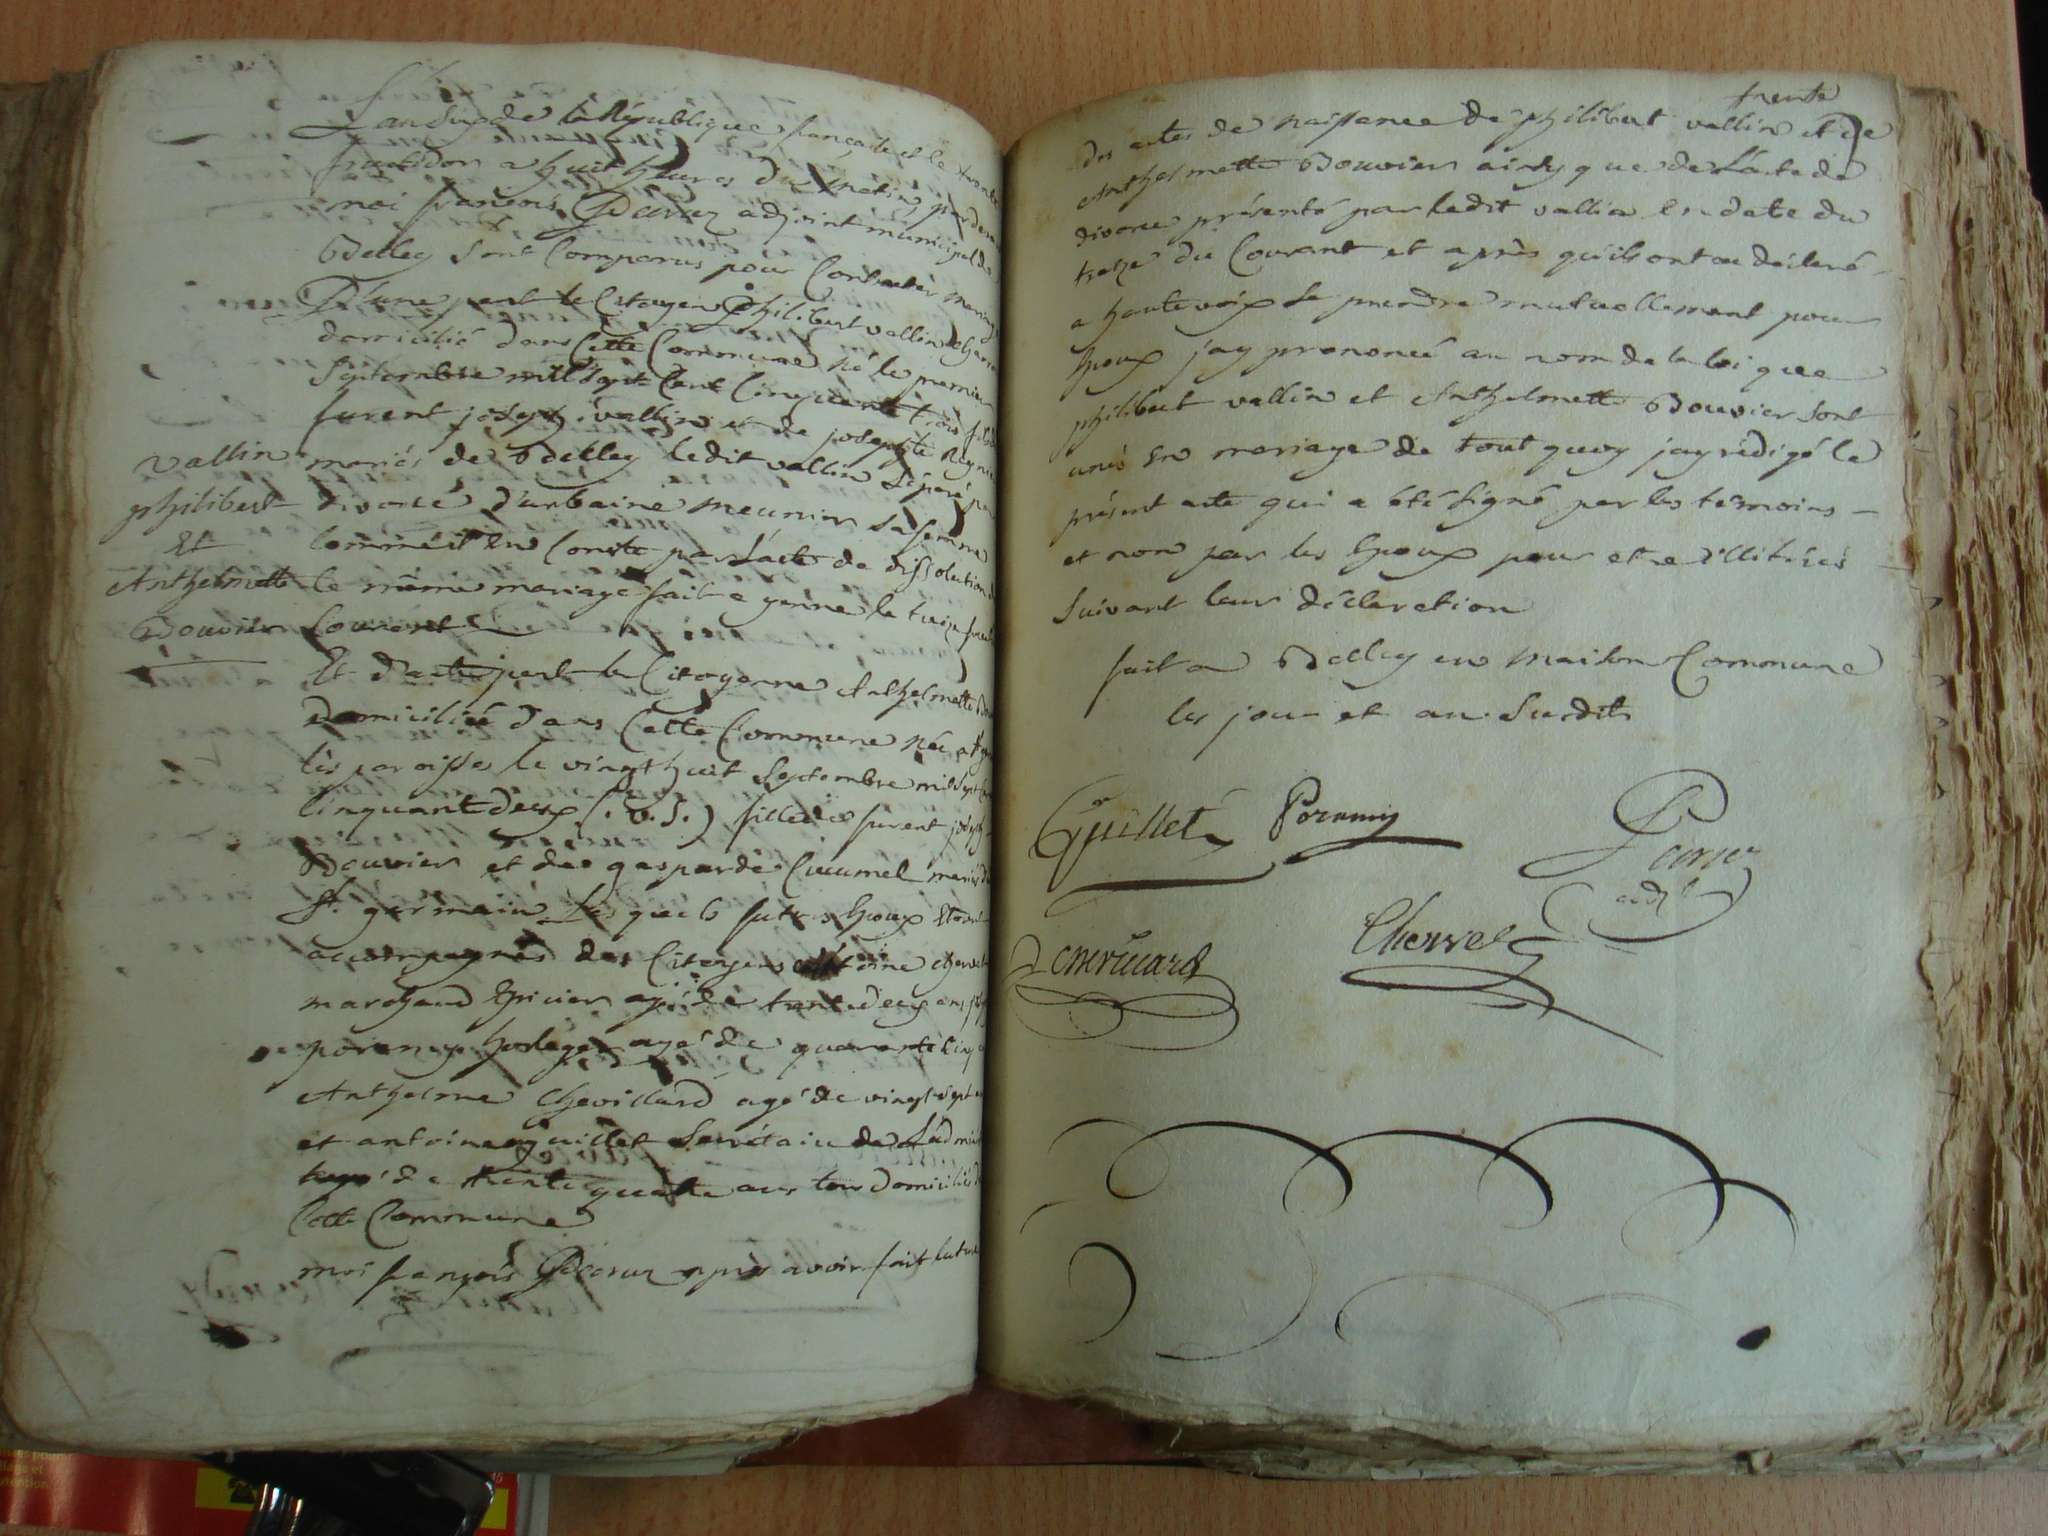 L'an de la République française et le trente
fructidor a huit heures du matin par devant
moi françois Parra adjoint municipal de
Belley sont Comparus pour Contracter mariage
D'une part le Citoyen Philibert vallin
domicilié dans Cette Commune né le premier
Septembre mil Sept Cent Cinquante trois fils de
furent joseph vallin et de josephte
mariés de Belley ledit vallin séparé par
divorce d'urbaine meunier sa femme
Comme il en Conste par L'acte de dissolution
le même mariage fait a yenne le treize
Courant
vallin
philibert
Et
Anthelmette
Bouvier
Et d'autre part la Citoyenne Anthelmette
Domiciliée dans Cette Commune née a St
dès paroisse le vingt huit Septembre mil Sept
Cinquant deux (. v. S.) fille de furent joseph
Bouvier et de gasparde Cucumel mariés
St. germain Les quels futurs Epoux Etant
accompagnés des Citoyens Antoine
marchand Epicier agé de trente deux ans
poramy horloger agé de quarante Cinq
Anthelme Chevillard agé de vingt Sept
et antoine guillet Secrétaire de L'admi
agé de trente quatre ans tous Domiciliés
Cette Commune
moi françois après avoir fait lecture
trente
des actes de naissance de philibert vallin et de
Anthelmette Bouvier ainsy que de L'acte de
divorce présenté par ledit vallin En date du
treize du Courant et après qu'ils ont eu déclaré
a haute voix Se prendre mutuellement pour
Epoux j'ay prononcé au nom de la loi que
philibert vallin et Anthelmette Bouvier Sont
unis En mariage de tout quoy jay rédigé le
présent acte qui a été Signé par les témoins –
et non par les Epoux pour etre illitérés
Suivant leur déclaration
fait a Belley en maison Commune
les jour et an Susdits
Guillet Poramy
adj